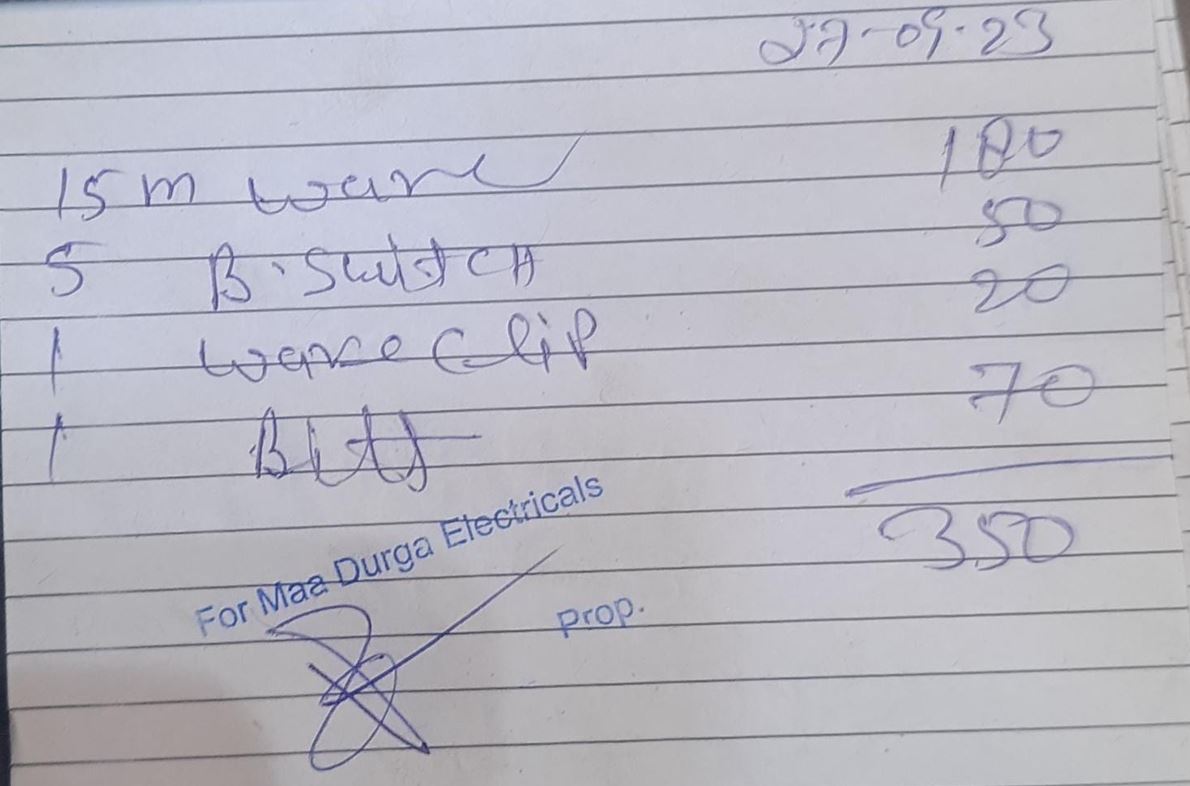 27-09-23
15 m ware 180
5 B.Switch 80
1 ware Clip 20
1 70
350
For Maa Durga Electricals
Prop.